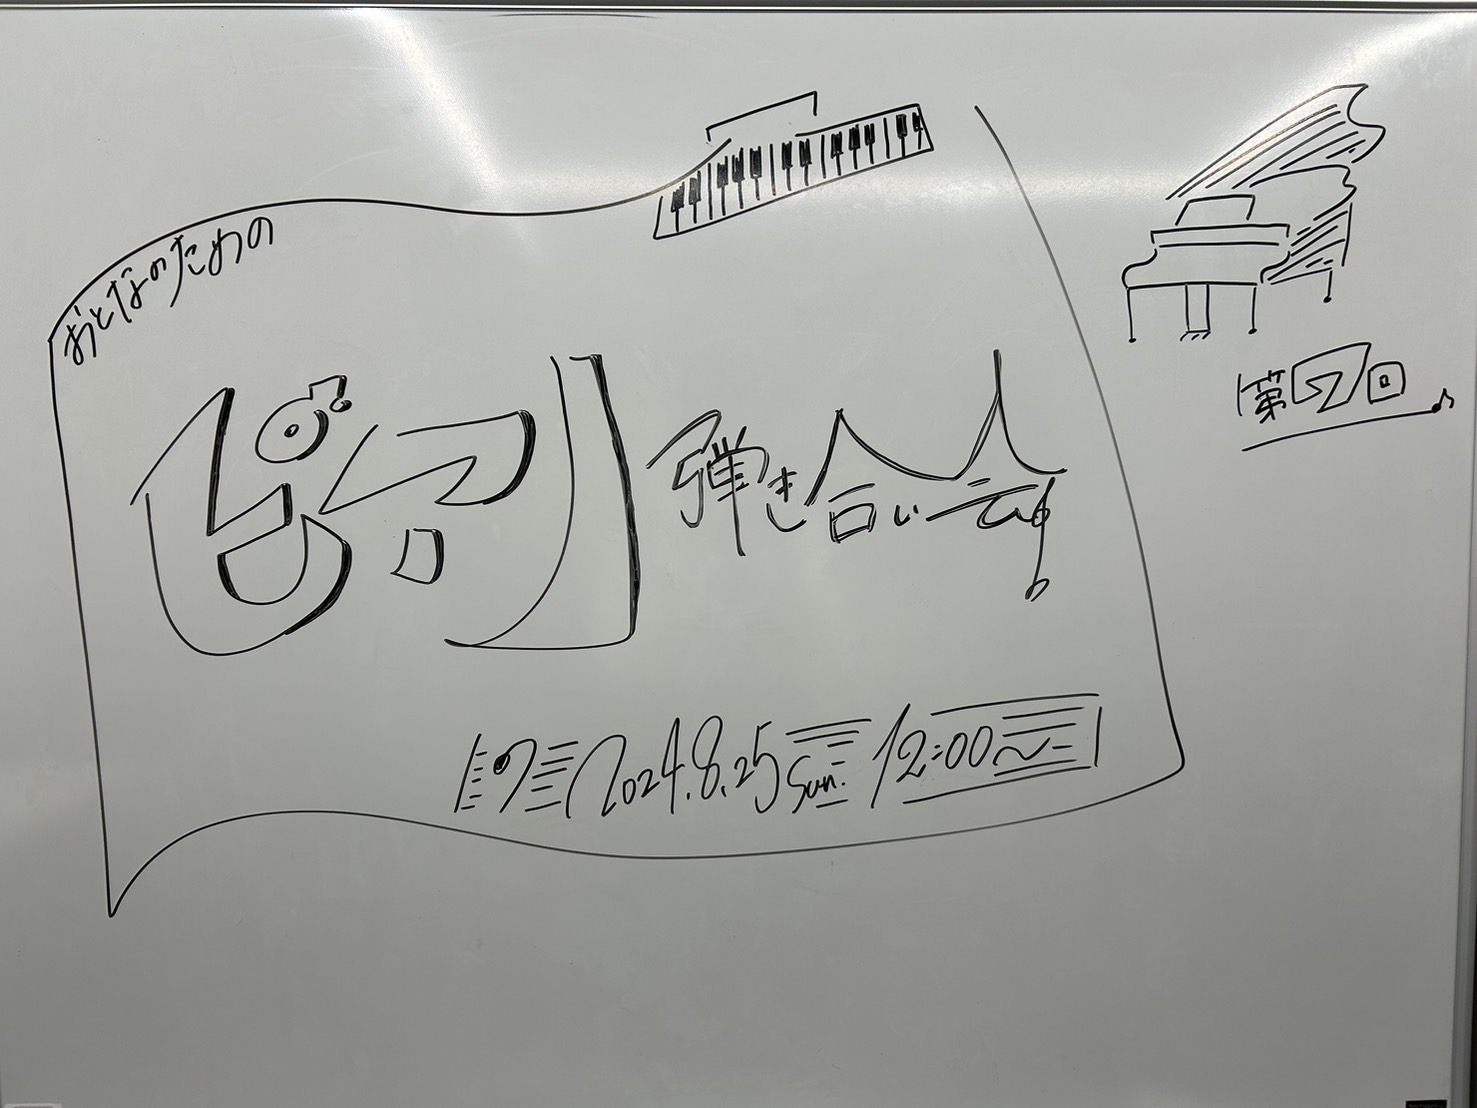 おとなのための
ピアノ弾き合い会
2024.8.25 Sun. 12:00〜
第7回